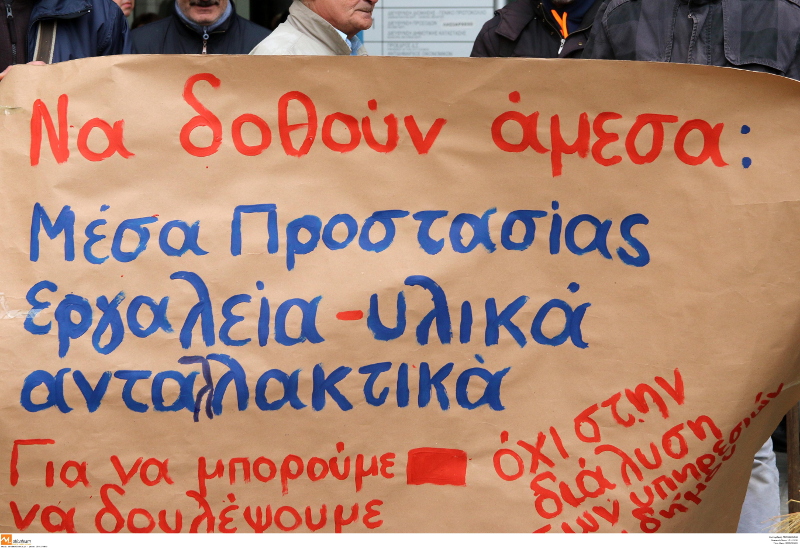 Να δοθούν άμεσα:
Μέσα Προστασίας
εργαλεία-υλικά
ανταλλακτικά
Για να μπορούμε
να δουλέψουμε
όχι στην
διάλυση
των υπηρεσιών